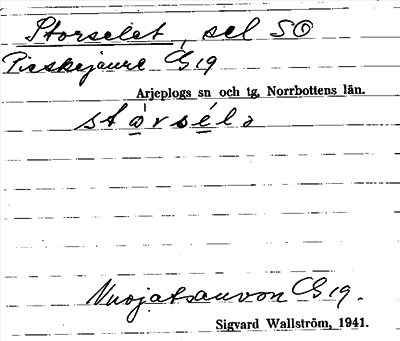 Storselet, sel SO
Pieskejaure Cg 19
Arjeplogs sn och tg, Norrbottens län.
Vuojatsauvon Cg 19.
Sigvard Wallström, 1941.